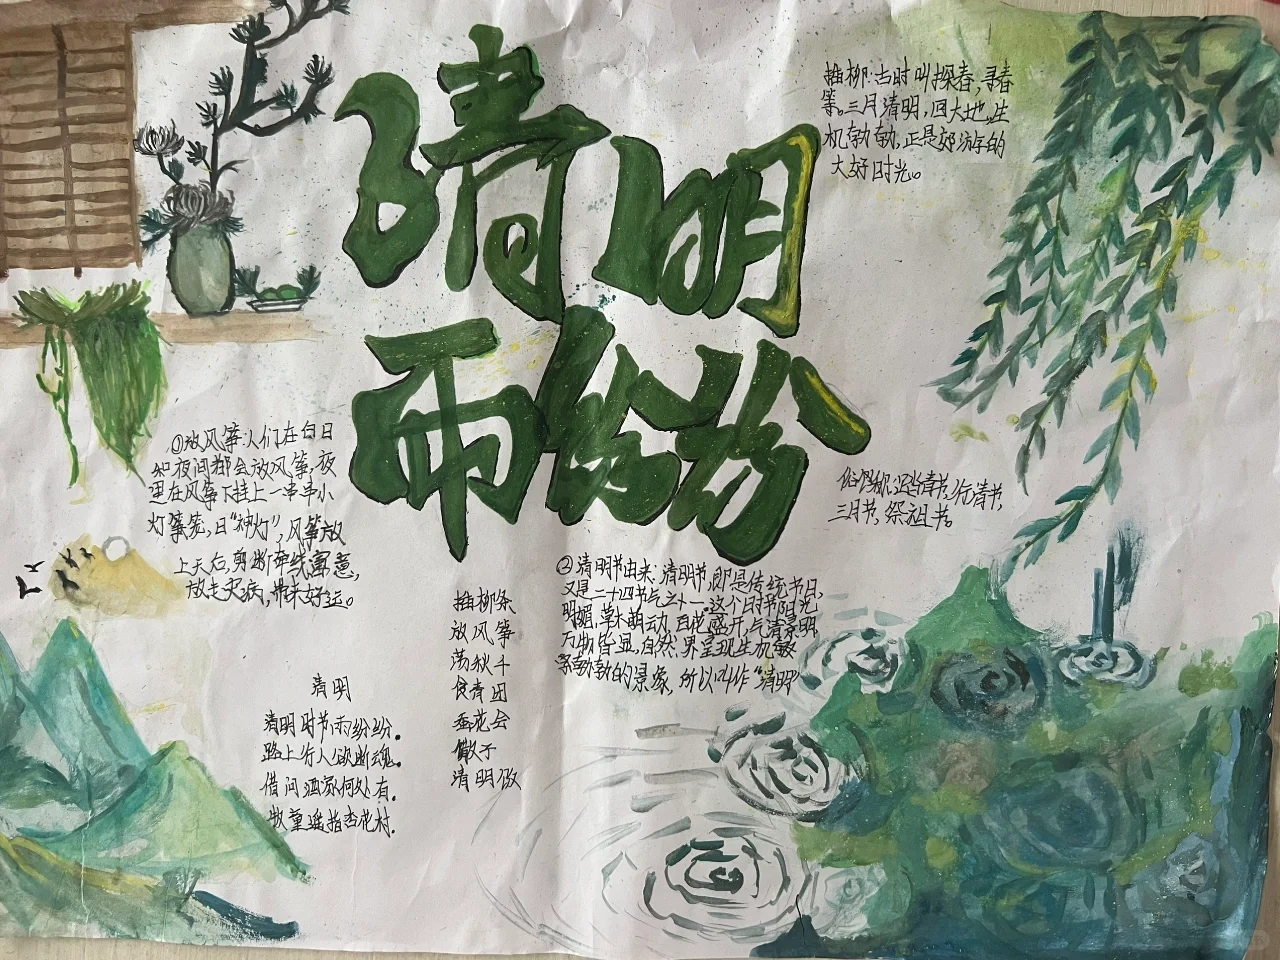 清明
雨纷纷
插柳:当时叫探春,寻春
等。三月清明,回大地,生
机勃勃,正是郊游的
大好时光。
①放风筝:人们在白日
和夜间都会放风筝,夜
里在风筝下挂上一串串小
灯笼,曰"神灯",风筝放
上天后,剪断牵线寓意,
放走灾病,带来好运。
俗。
三月节,祭祖节。
②清明节由来:清明节,即是传统节日,
又是二十四节气之十一.这个时节阳光
明媚,草木萌动,百花盛开,气清景明
万物皆显,自然界呈现生机
勃勃的景象,所以叫作"清明"
插柳条
放风筝
荡秋千
食青团
蚕花会
馓子
清明
清明
清明时节雨纷纷.
路上行人欲断魂.
借问酒家何处有.
牧童遥指杏花村.